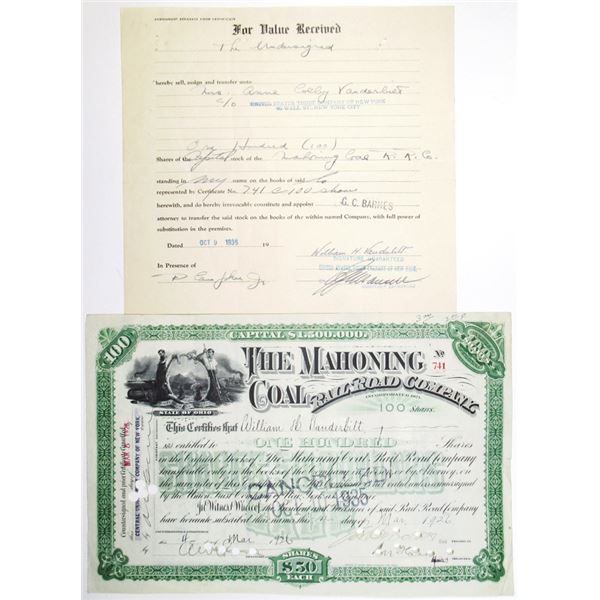 ASSIGNMENT SEPARATE FROM CERTIFICATE
For Value Received
The Undersigned
hereby sell, assign and transfer unto
Mrs. Anne Colby Vanderbilt
c/o UNITED STATES TRUST COMPANY OF NEW YORK
45 WALL ST. NEW YORK CITY
One Hundred (100)
Shares of the Capital stock of the Mahoning Coal R. R. Co.
standing in my name on the books of said Co
represented by Certificate No. 741 100 shares
herewith, and do hereby irrevocably constitute and appoint G. C. BARNES
attorney to transfer the said stock on the books of the within named Company, with full power of
substitution in the premises.
Dated OCT 9 1936 19
William H. Vanderbilt
SIGNATURE GUARANTEED
UNITED STATES TRUST COMPANY OF NEW YORK
In Presence of
CAPITAL $1,500,000.
100
100
THE MAHONING
COAL RAILROAD COMPANY.
No
741
INCORPORATED 1871
STATE OF OHIO
100 Shares.
This Certifies that William H. Vanderbilt
is entitled to ONE HUNDRED Shares
in the Capital Stock of The Mahoning Coal Rail Road Company
transferable only on the books of the Company in person or by Attorney, on
surrender of this Certificate
the Union Trust Company of New York
CANCELLED
OCT 1936
In Witness Whereof the President and Treasurer of said Rail Road Company
have hereunto subscribed their names this 4 day of Mar 1926
4 Mar 1926
Countersigned and
MAR 8 1926
CENTRAL UNION TRUST COMPANY OF NEW YORK
SHARES
$50
EACH